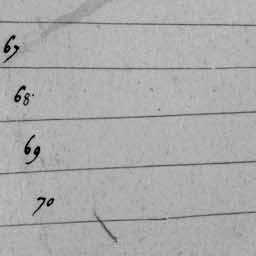 67
68
69
70